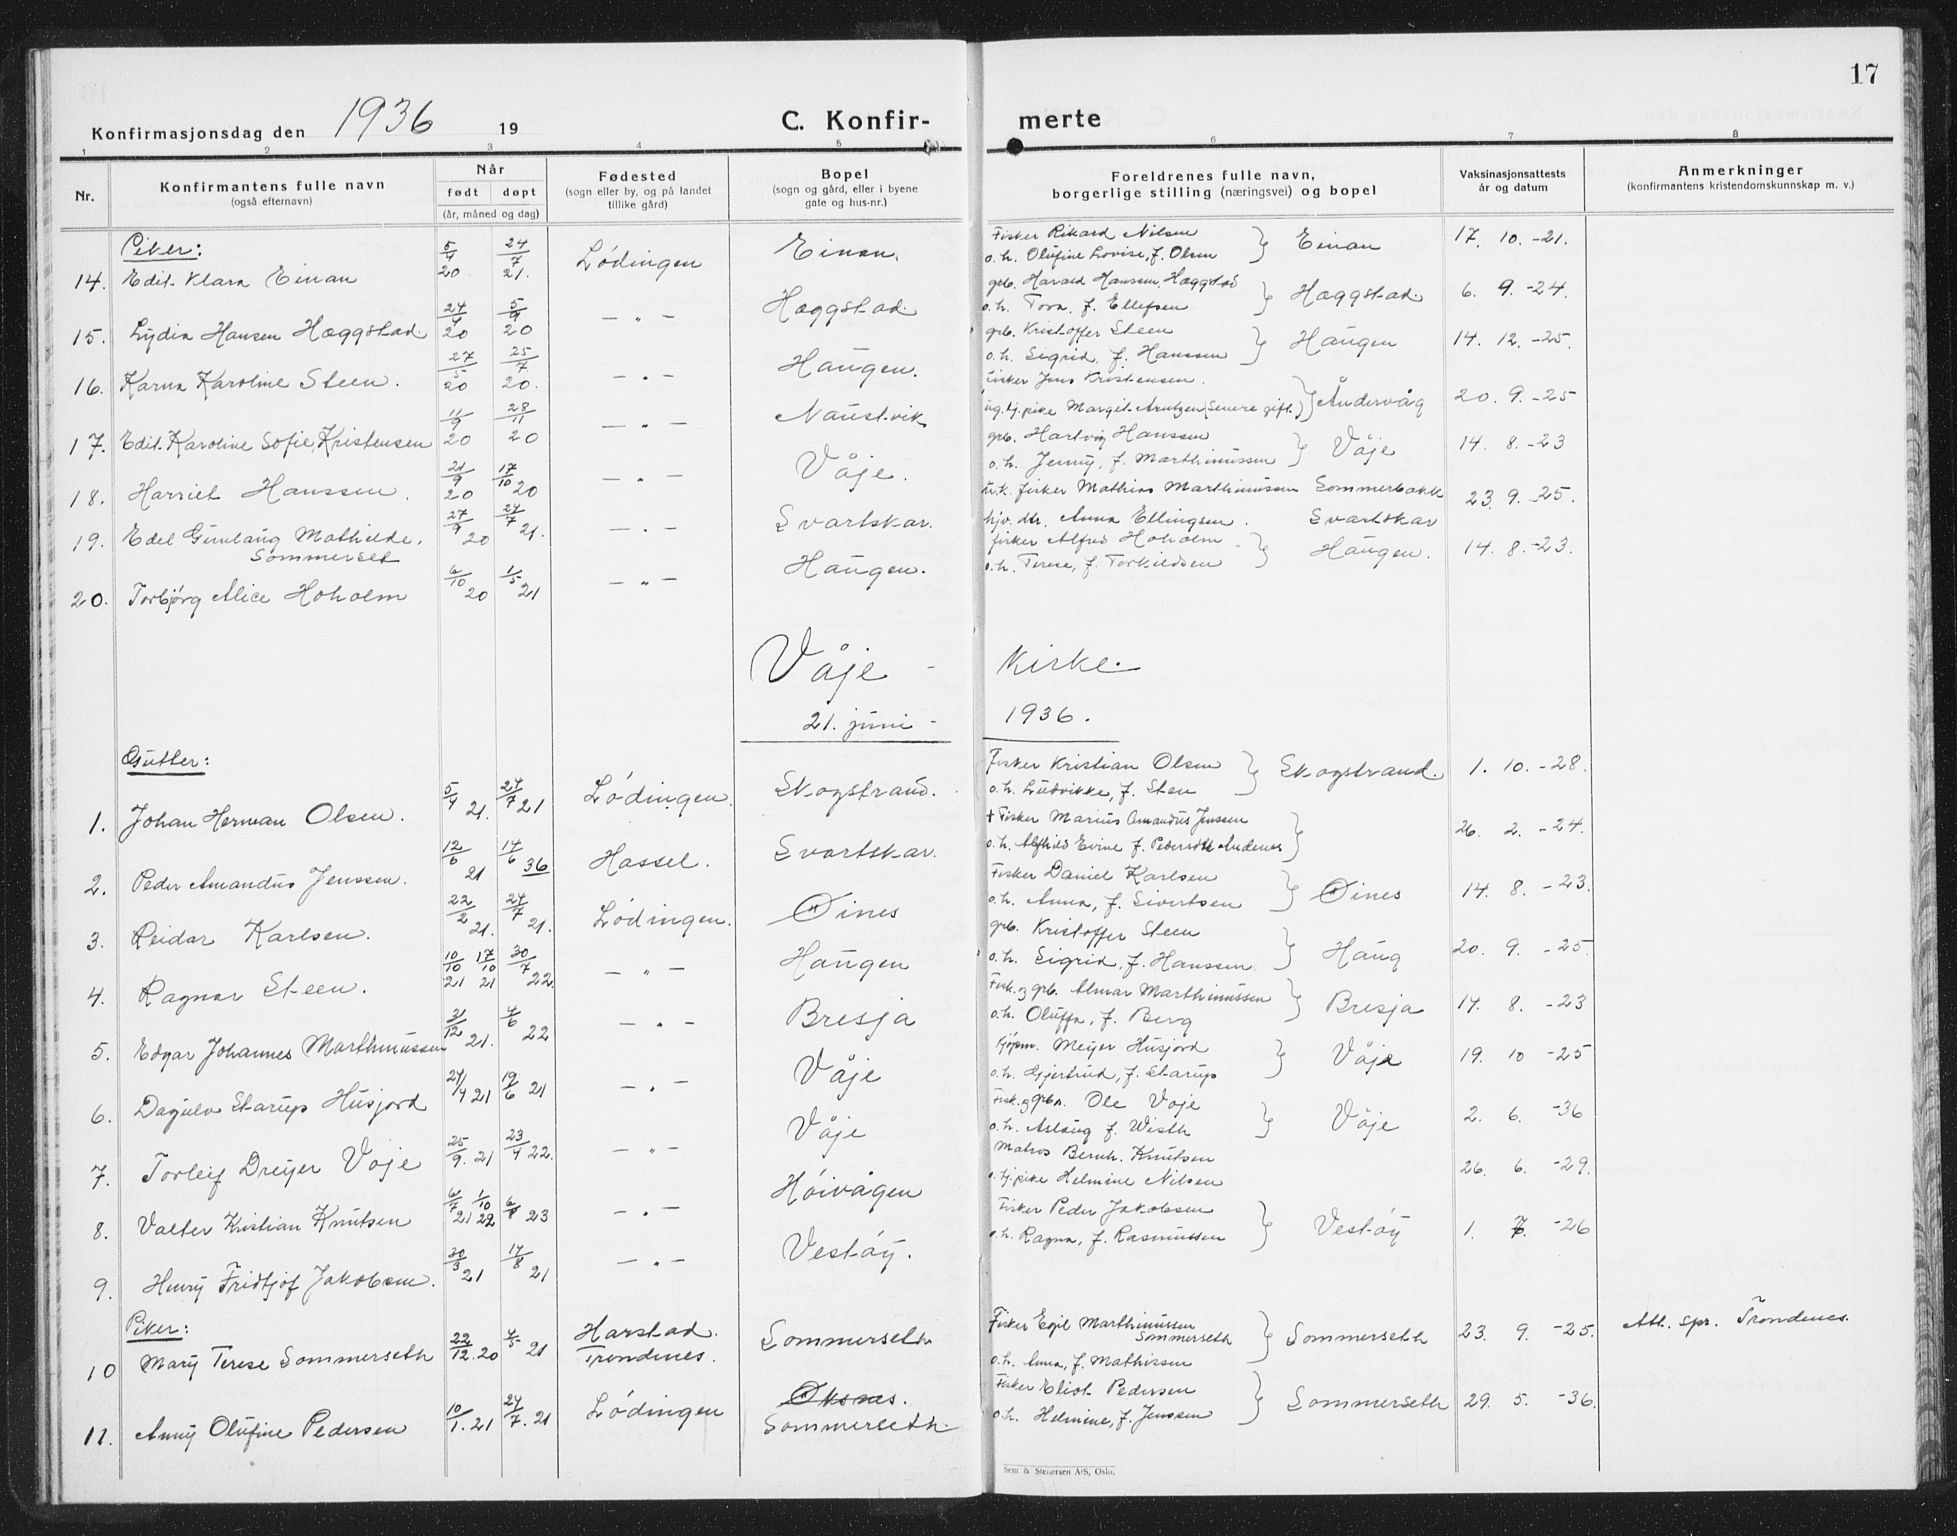 17
Konfirmasjonsdag den 1936 19
C. Konfir- merte
1 2 3 4 5 6 7 8
Nr.
Konfirmantens fulle navn
(også efternavn)
Når
født døpt
(år, måned og dag)
Fødested
(sogn eller by, og på landet
tillike gård)
Bopel
(sogn og gård, eller i byene
gate og hus-nr.)
Foreldrenes fulle navn,
borgerlige stilling (næringsvei) og bopel
Vaksinasjonsattests
år og datum
Anmerkninger
(konfirmantens kristendomskunnskap m. v.)
Piker:
14. Edit Klara Einan 5/4 20 24/7 21. Lödingen Einan. Fisker Rikard Nilsen
o.h. Olufine Lovise, f. Olsen } Einan 17. 10. -21.
15. Lydia Hansen Hæggstad 24/4 20 5/9 20 — " — Hæggstad. grb. Harald Hanssen Hæggstad
o.h. Tora f. Ellefsen } Hæggstad. 6. 9. -24.
16. Karna Karoline Steen. 27/5 20 25/7 20. — " — Haugen. grb. Kristoffer Steen
o.h. Sigrid, f. Hanssen } Haugen 14. 12. -25.
17. Edit Karoline Sofie Kristensen 11/9 20 28/11 20 — " — Naustvik Fisker Jens Kristensen.
ug. tj.pike Margit Arntzen (senere gift.) } Åndervåg 20. 9. -25
18. Harriet Hanssen. 21/9 20 17/10 20 — " — Våje. grb. Hartvig Hanssen
o.h. Jenny, f. Marthinussen } Våje 14. 8. -23
19. Edel Gunlaug Mathilde,
Sommerset 27/9 20 24/7 21. — " — Svartskar. u.k. fisker Mathias Marthinussen Sommerbakk
hjv. dtr. Anna Ellingsen. Svartskar 23. 9. -25.
20. Torbjörg Alice Hoholm 6/10 20 1/5 21 — " — Haugen. fisker Alfred Hoholm
o.h. Terese, f. Torkildsen } Haugen. 14. 8. -23.
Våje - Kirke.
21. juni - 1936.
Gutter:
1. Johan Herman Olsen. 5/4 21. 24/7 21 Lödingen. Skogstrand. Fisker Kristian Olsen
o.h. Ludvikke, f. Sten } Skogstrand. 1. 10. -28.
2. Peder Amandus Jenssen. 12/6 21 14/6 36 Hassel. Svartskar. + Fisker Marius Amandus Jenssen
o.h. Alfhild Evine f. Andenes } 26. 2. -24.
3. Reidar Karlsen. 22/2 21. 24/7 21. Lödingen. Öines Fisker Daniel Karlsen
o.h. Anna, f. Sivertsen } Öines 14. 8. -23.
4. Ragnar Steen. 10/10 21 17/10 21 30/7 22. — " — Haugen grb. Kristoffer Steen
o.h. Sigrid, f. Hanssen } Haug 20. 9. -25.
5. Edgar Johannes Marthinussen 31/12 21. 4/6 22 — " — Bresja Fisk. og grb. Almar Marthinussen
o.h. Oluffa, f. Berg } Bresja 14. 8. -23
6. Dagulv Starup Husjord 21/4 21 19/6 21 — " — Våje Kjøpm. Meyer Husjord
o.h. Gjertrud, f. Starup } Våje 19. 10 -25
7. Torleif Dreyer Våje 25/9. 21 23/4 22. — " — Våje Fisk. og grbr. Ole Våje
o.h. Aslaug f. Wisth } Våje 2. 6. -36
8. Valter Kristian Knutsen 6/7 21 1/10 22 6/8 23 — " — Höivågen Matros Bernh. Knutsen
o. tj.pike Helmine Nilsen 26. 6. -29.
9. Henry Fridtjof Jakobsen. 30/3 21 14/8 21 — " — Vestöy. Fisker Peder Jakobsen
o.h. Ragna, f. Rasmussen } Vestöy 1. 7. -26
Piker:
10 Mary Terese Sommerseth 22/12. 20 4/5 21 Harstad.
Trondenes. Sommerseth Fisker Egil Marthinussen
Sommerseth
o.h. Anna, f. Mathissen } Sommerseth 23. 9. -25. Att. spr. Trondenes.
11. Anny Olufine Pedersen 10/1. 21 24/7. 21 Lödingen Öksnes.
Sommerseth. Fisker Eliot Pedersen
o.h. Helmine, f. Jenssen } Sommerseth 29. 5. -36.
Sem & Stenersen A/S, Oslo.